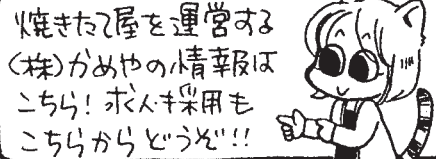 焼きたて屋を運営する
(株)かめやの情報は
こちら！求人採用も
こちらからどうぞ!!